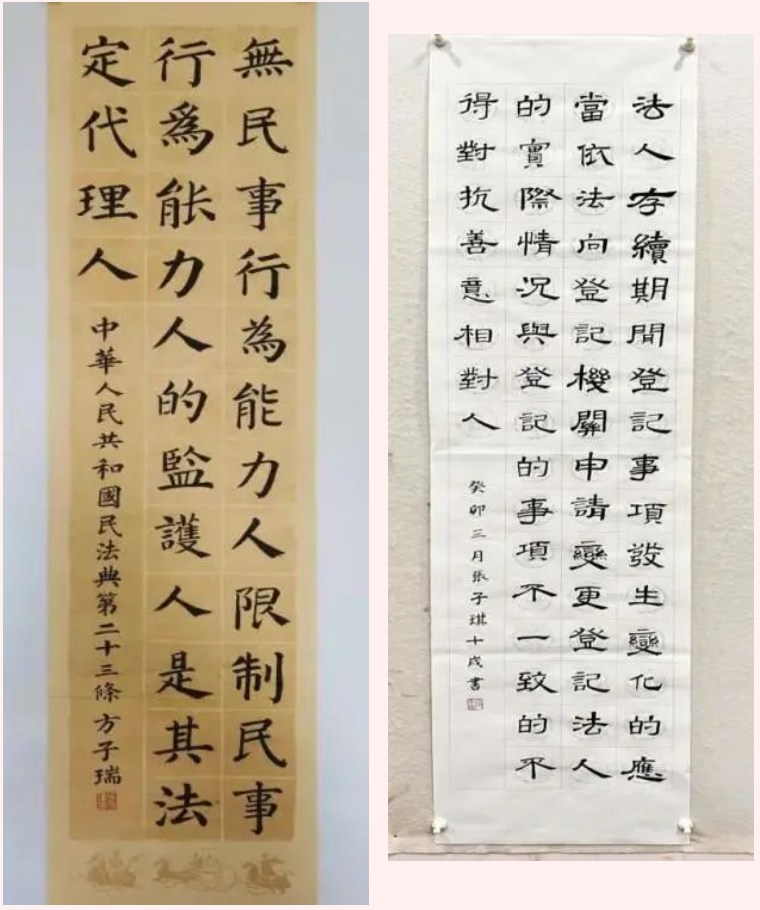 無民事行為能力人限制民事
行爲能力人的監護人是其法
定代理人
中華人民共和國民法典第二十三條方子瑞
法人存續期間登記事項發生變化的應
當依法向登記機關申請變更登記法人
的實際情況與登記的事項不一致的不
得對抗善意相對人
癸卯三月張子琪十書